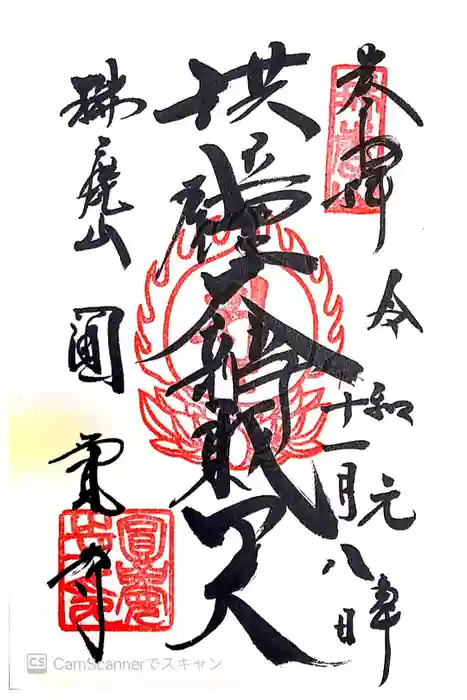 奉拝
令和元年
十一月八日
洪鐘大辨財天
瑞鹿山
圓覚寺
CS CamScannerでスキャン